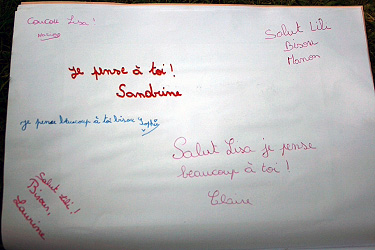 Coucou Lisa !
Salut Lili
Bisou
Manon
Je pense à toi !
Sandrine
je pense beaucoup à toi bisou Sophie
Salut Lisa je pense
beaucoup à toi !
Claire
Salut Lili !
Bisous,
Laurine